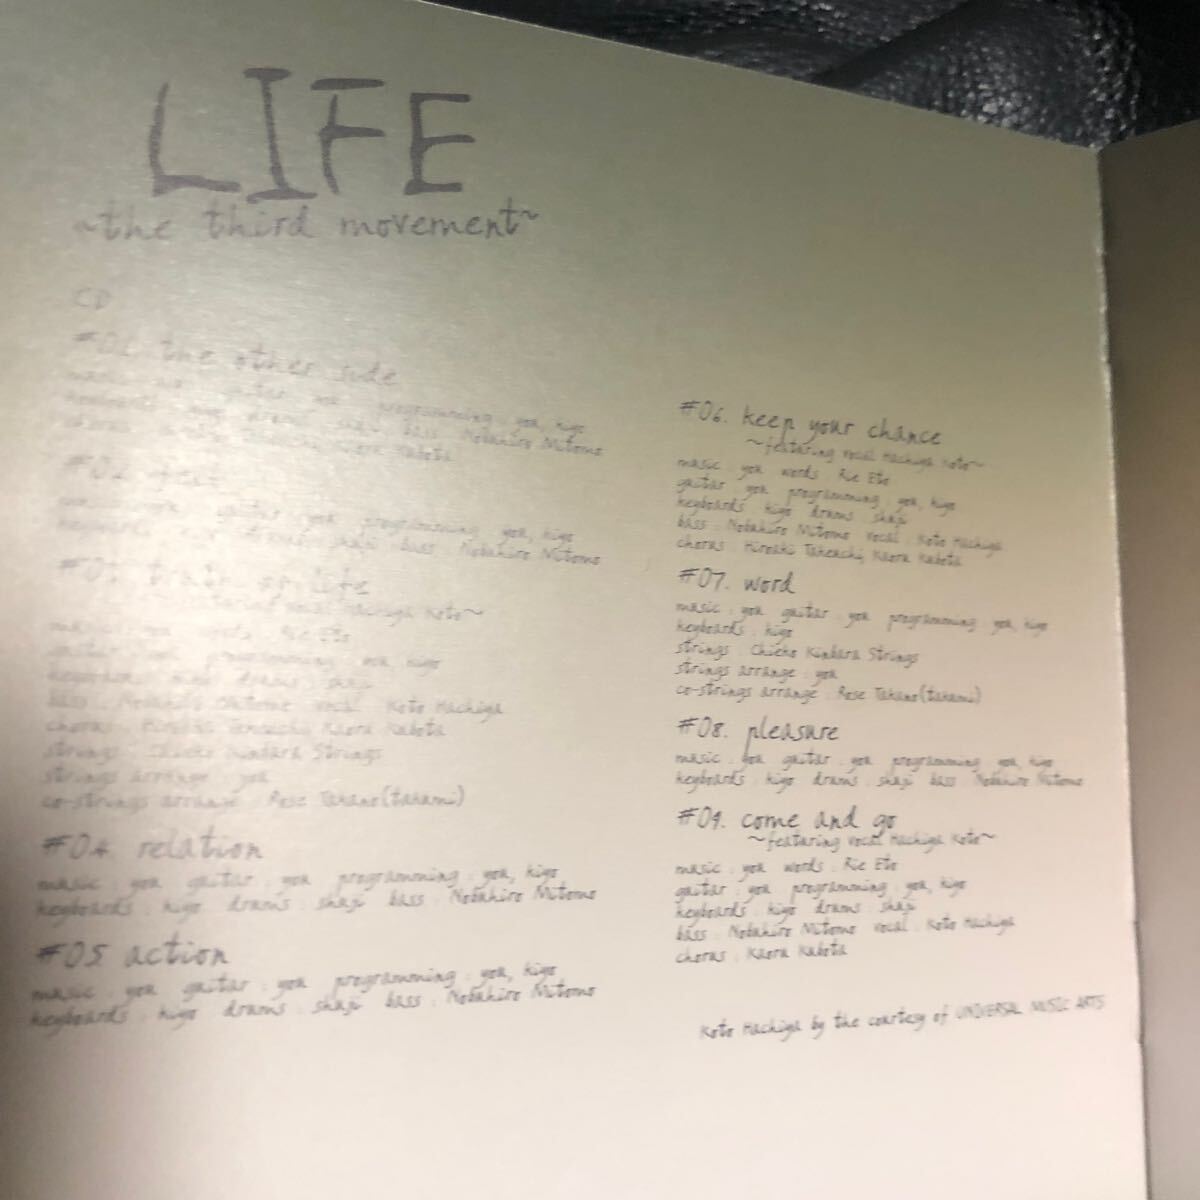 LIFE
~the third movement~
CD
#01. the other side
programming : you, kiyo
keyboards : kiyo drums : shuji bass : Nobuhiro Mitomo
Kaoru Kubota
#02.
programming : you, kiyo
keyboards : drums : shuji bass : Nobuhiro Mitomo
#03. of life
vocal Hachiya Koto~
music : you words : Rie Eto
guitar : you programming : you, kiyo
keyboards : kiyo drums : shuji
bass : Nobuhiro Mitomo vocal : Koto Hachiya
chorus : Hiroaki Takeuchi, Kaoru Kubota
strings : Chieko Kinbara Strings
strings arrange : you
co-strings arrange : Rose Takano(takami)
#04. relation
music : you guitar : you programming : you, kiyo
keyboards : kiyo drums : shuji bass : Nobuhiro Mitomo
#05 action
music : you guitar : you programming : you, kiyo
keyboards : kiyo drums : shuji bass : Nobuhiro Mitomo
#06. keep your chance
~featuring vocal Hachiya Koto~
music : you words : Rie Eto
guitar : you programming : you, kiyo
keyboards : kiyo drums : shuji
bass : Nobuhiro Mitomo vocal : Koto Hachiya
chorus : Hiroaki Takeuchi, Kaoru Kubota
#07. word
music : you guitar : you programming : you, kiyo
keyboards : kiyo
strings : Chieko Kinbara Strings
strings arrange : you
co-strings arrange : Rose Takano(takami)
#08. pleasure
music : you guitar : you programming : you, kiyo
keyboards : kiyo drums : shuji bass : Nobuhiro Mitomo
#09. come and go
~featuring vocal Hachiya Koto~
music : you words : Rie Eto
guitar : you programming : you, kiyo
keyboards : kiyo drums : shuji
bass : Nobuhiro Mitomo vocal : Koto Hachiya
chorus : Kaoru Kubota
Koto Hachiya by the courtesy of UNIVERSAL MUSIC ARTS